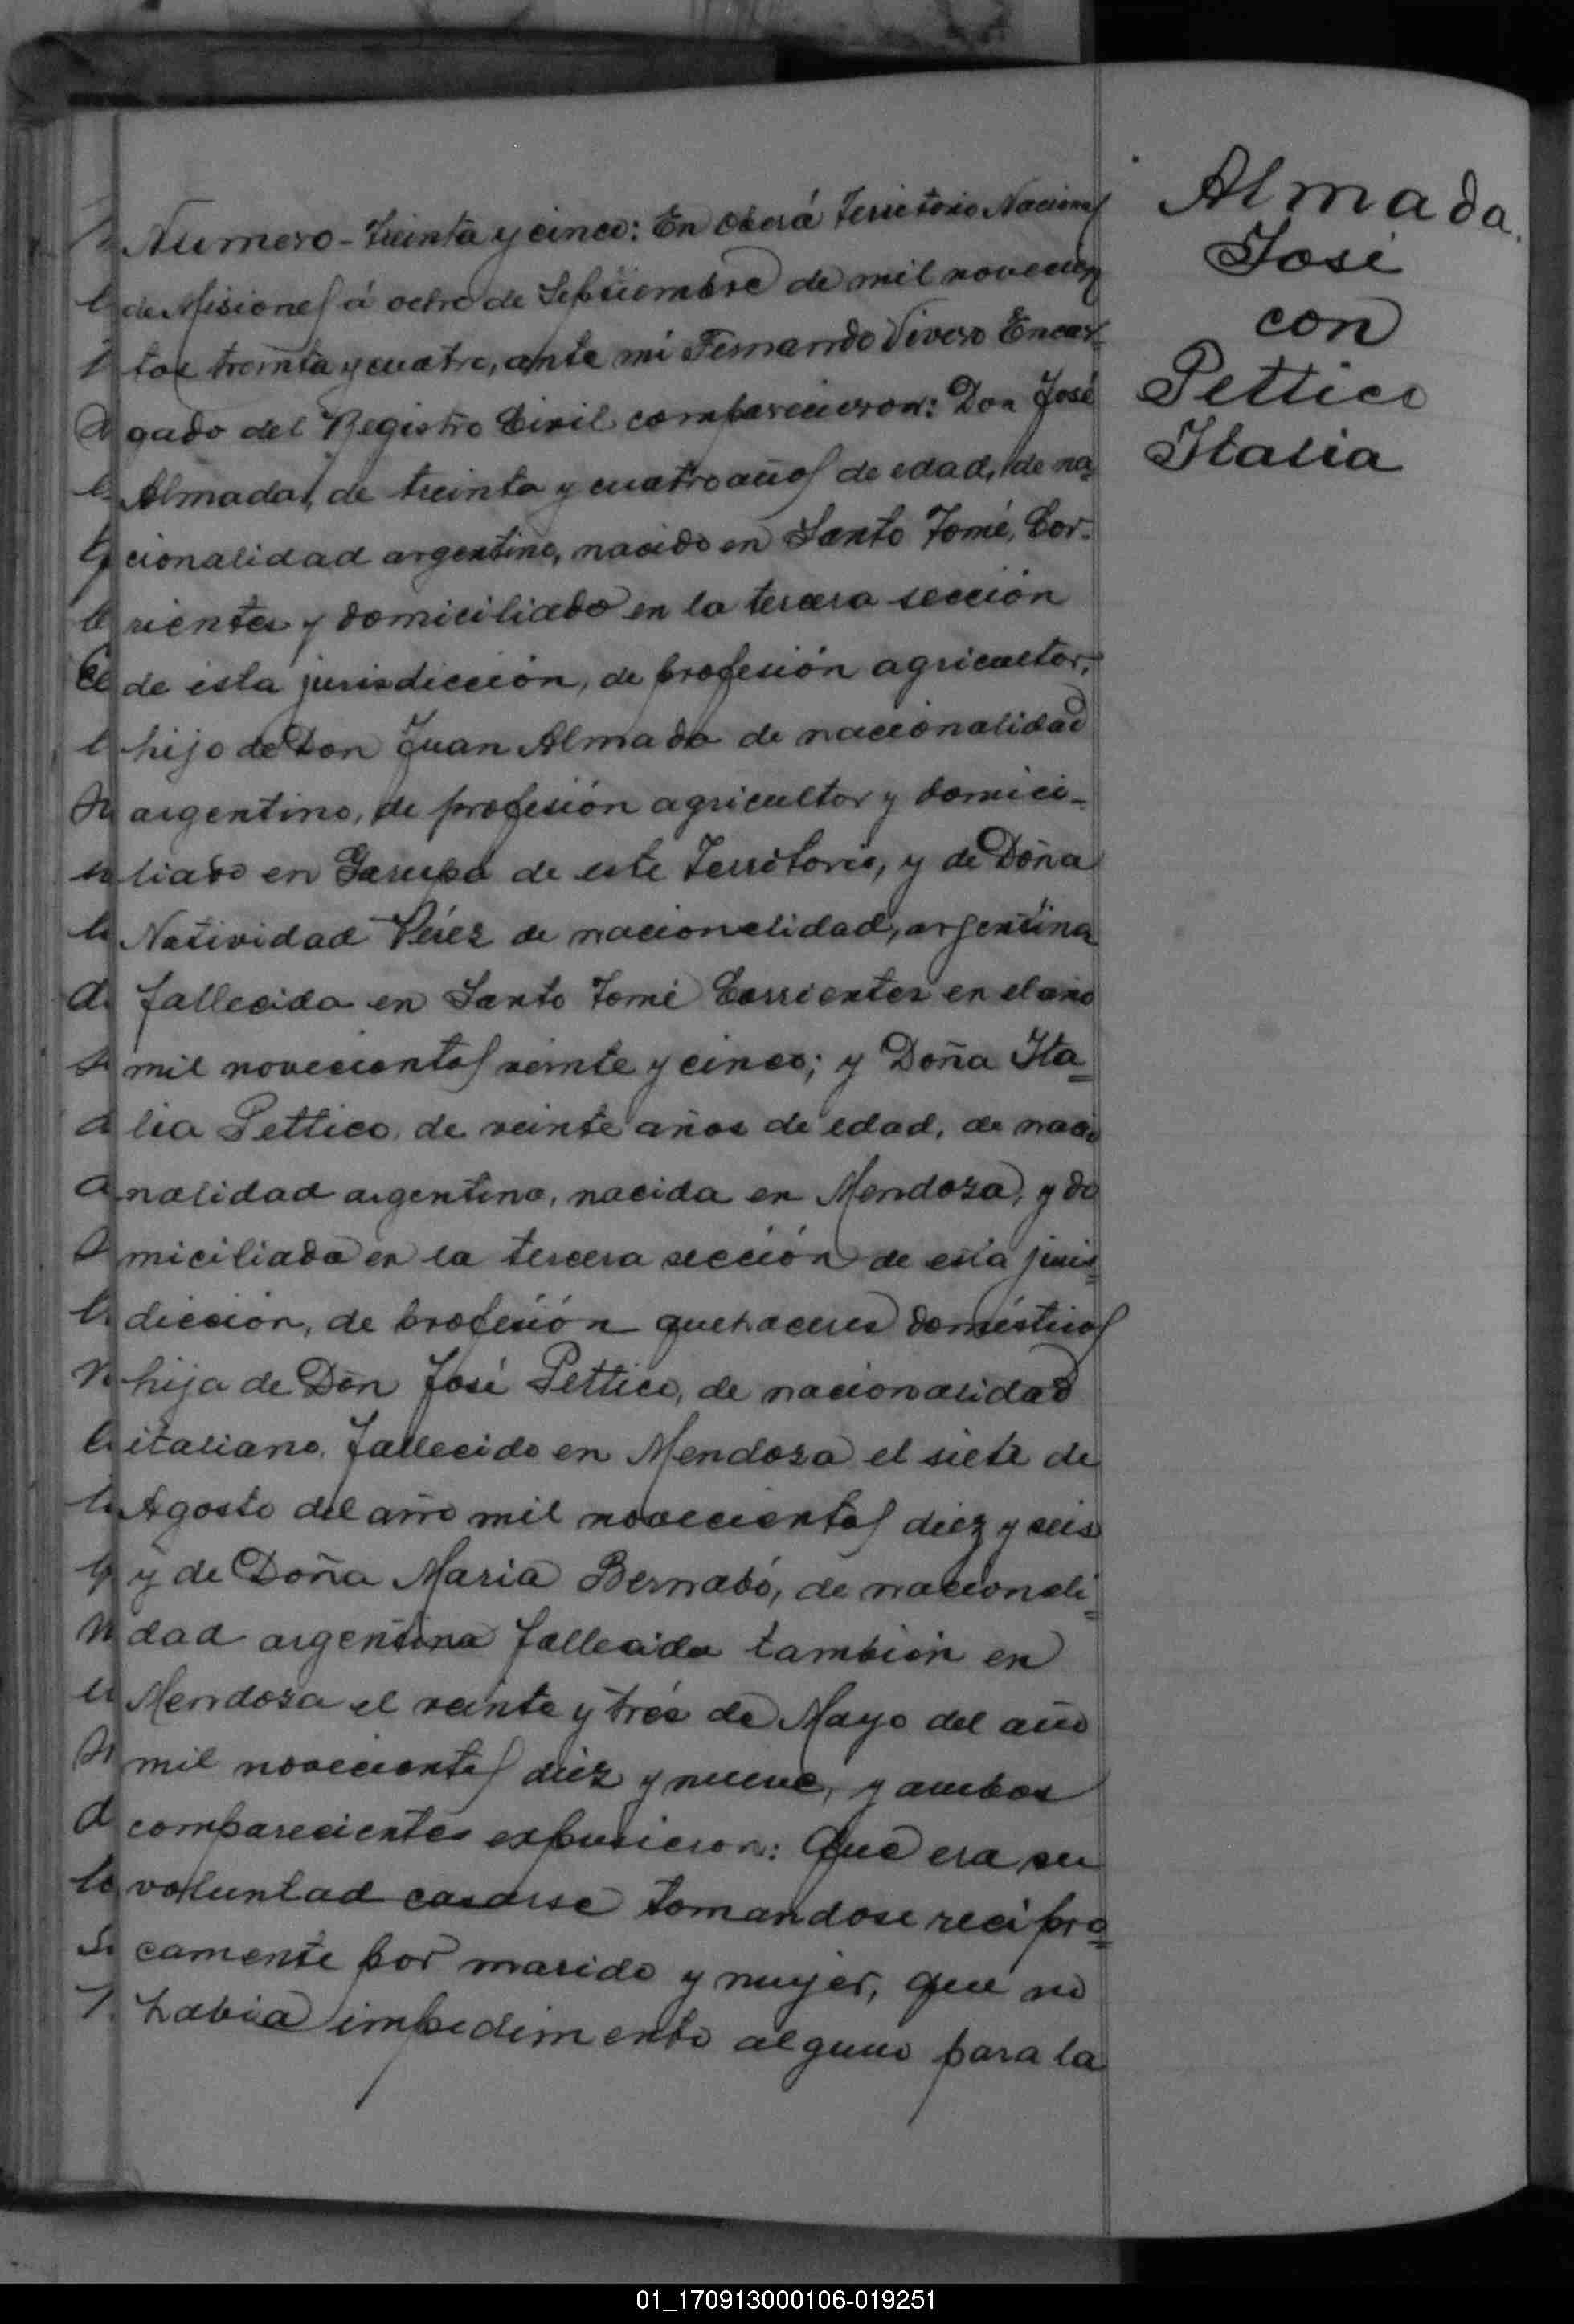 Numero - treinta y cinco: En Oberá Territorio Nacional
de Misiones á ocho de Septiembre de mil novecien
tos treinta y cuatro, ante mi Fernando Vivero Encar-
gado del Registro Civil comparecieron: Don José
Almada, de treinta y cuatro años de edad, de na-
cionalidad argentino, nacido en Santo Tomé, Cor-
rientes y domiciliado en la tercera sección
de esta jurisdicción, de profesión agricultor,
hijo de Don Juan Almada de nacionalidad
argentino, de profesión agricultor y domici-
liado en Garupá de este Territorio, y de Doña
Natividad Pérez de nacionalidad, argentina
fallecida en Santo Tomé Corrientes en el año
mil novecientos veinte y cinco; y Doña Ita=
lia Pettico, de veinte años de edad, de nacio
nalidad argentina, nacida en Mendoza, y do
miciliada en la tercera sección de esta juris=
dicción, de profesión quehaceres domésticos
hija de Don José Pettico, de nacionalidad
italiano, fallecido en Mendoza el siete de
Agosto del año mil novecientos diez y seis
y de Doña Maria Bernabó, de nacionali=
dad argentina fallecida también en
Mendoza el veinte y trés de Mayo del año
mil novecientos diez y nueve, y ambos
comparecientes expusieron: Que era su
voluntad casarse tomandose recipro=
camente por marido y mujer, que no
habia impedimento alguno para la
Almada.
José
con
Pettico
Italia
01_170913000106-019251